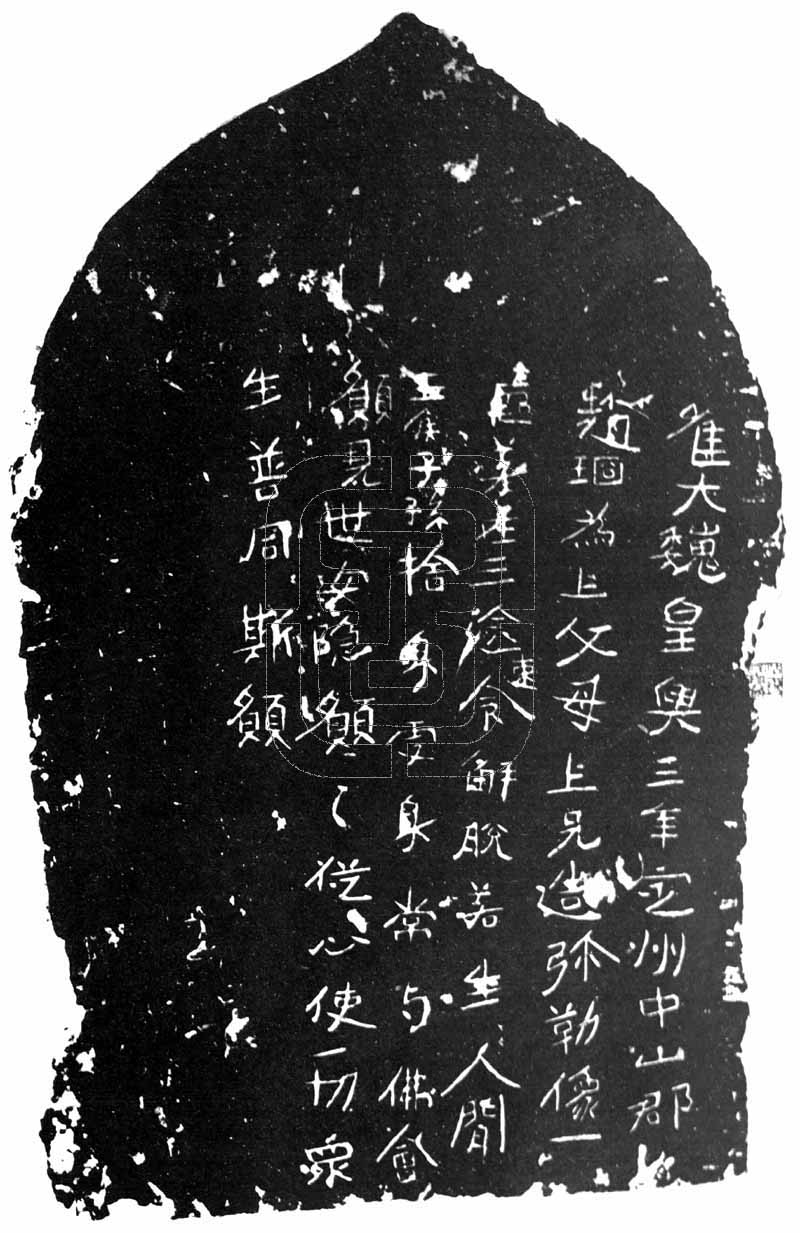 唯大魏皇興三年定州中山郡
趙珚為上父母上兄造弥勒像一
區若在三途速令解脫若生人間
王侯子孫捨身受身常与佛會
願見世安隱願〻從心使一切眾
生普同斯願